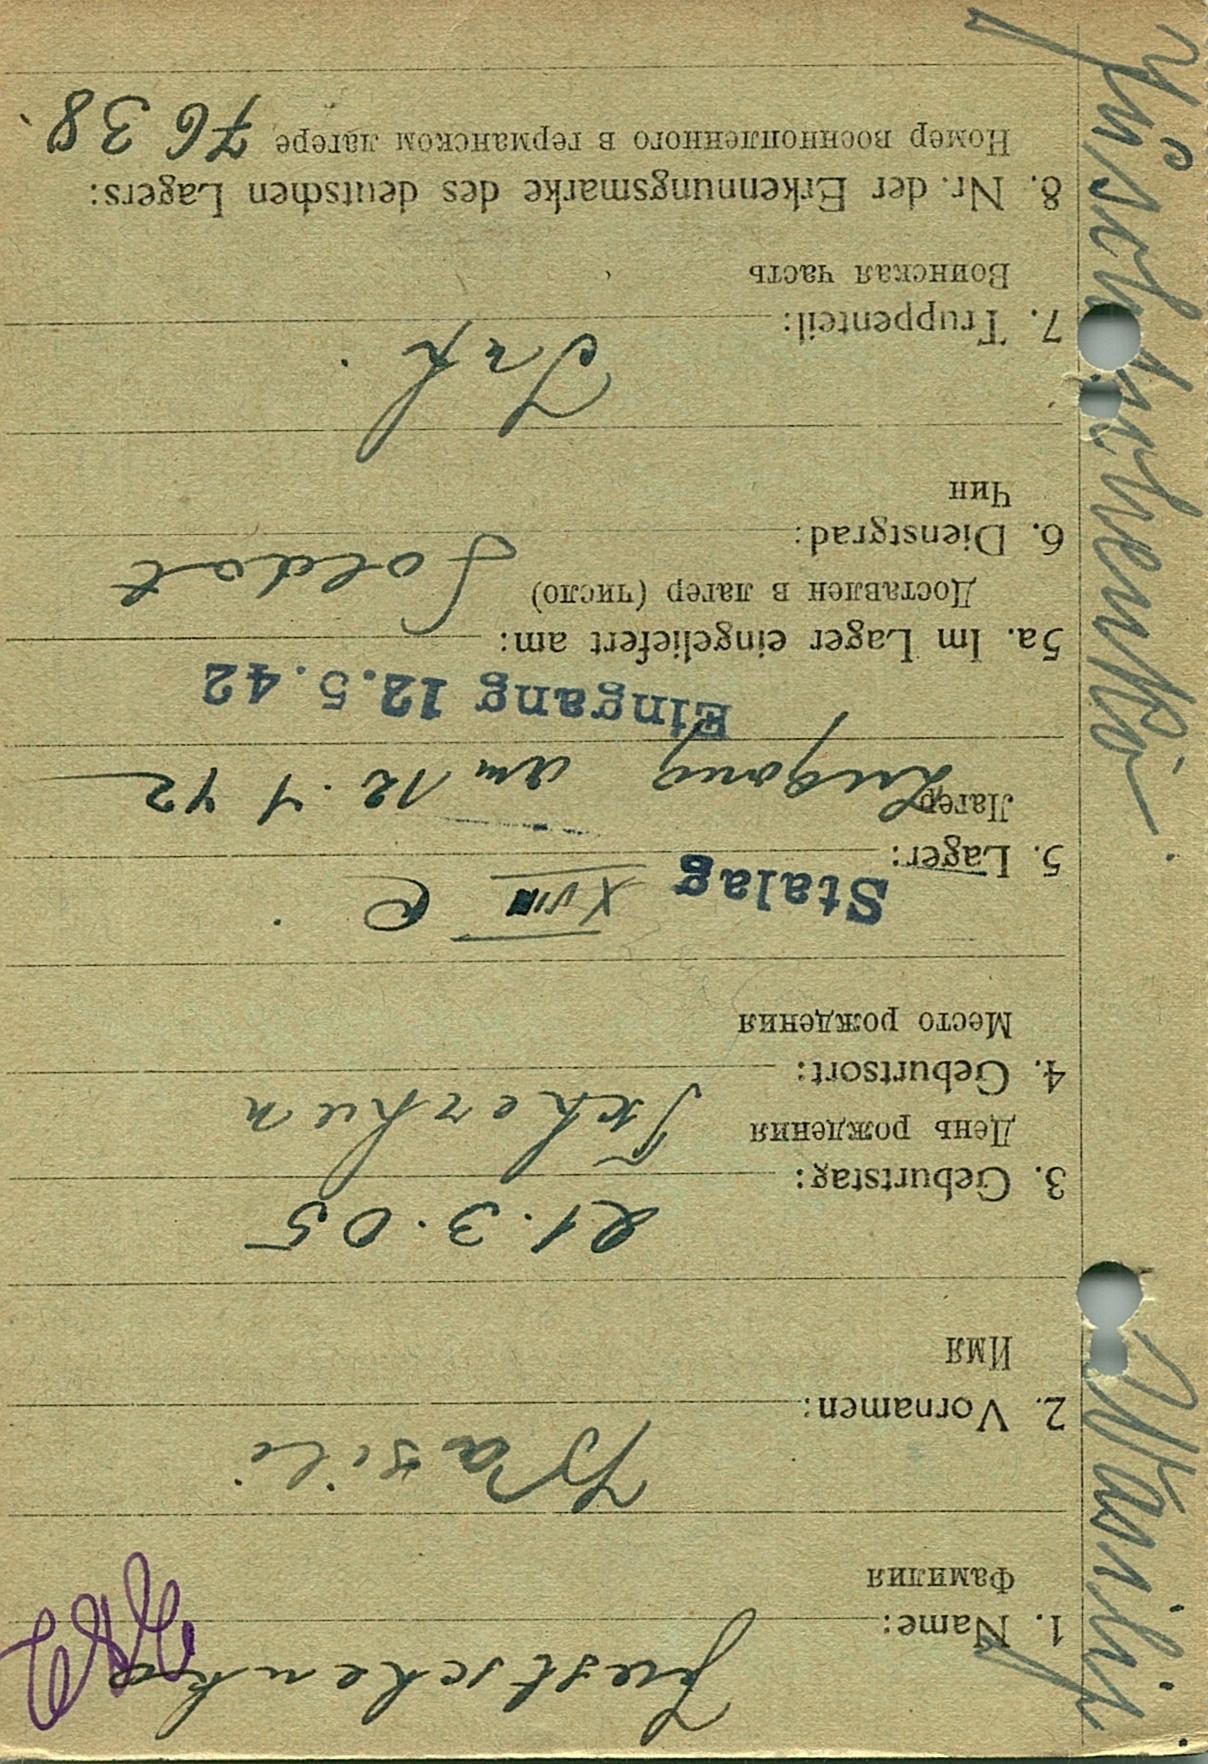 Juschtschenko
Wasilij
Justschenko
1. Name:
Фамилия
Wasili
2. Vornamen:
Имя
21.3.05
3. Geburtstag:
День рождения
4. Geburtsort:
Место рождения
Stalag XVIII C
5. Lager:
Лагерь
Zugang am 12.4 42
Eingang 12.5.42
5a. Im Lager eingeliefert am:
Доставлен в лагерь (число)
Soldat
6. Dienstgrad:
Чин
Inf.
7. Truppenteil:
Воинская часть
8. Nr. der Erkennungsmarke des deutschen Lagers:
Номер военнопленного в германском лагере 7638.